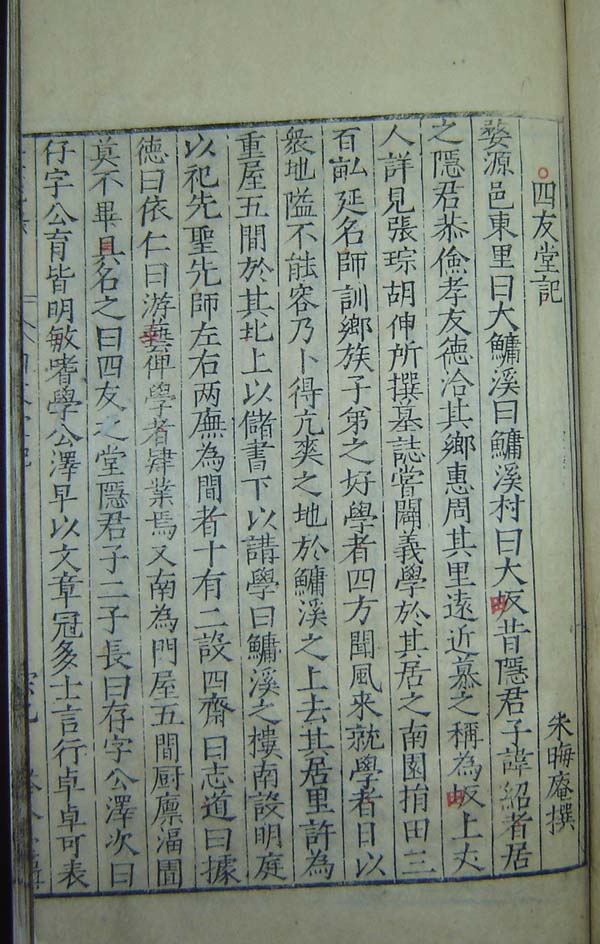 四友堂記
朱晦庵撰
婺源邑東里曰大鱅溪曰鱅溪村曰大坂昔隱君子諱紹者居
之隱君恭儉孝友德洽其鄉惠周其里遠近慕之稱為坂上丈
人詳見張琮胡伸所撰墓誌嘗闢義學於其居之南園捐田三
百畝延名師訓鄉族子弟之好學者四方聞風來就學者日以
衆地隘不能容乃卜得亢爽之地於鱅溪之上去其居里許為
重屋五間於其北上以儲書下以講學曰鱅溪之樓南設明庭
以祀先聖先師左右两廡為間者十有二設四齋曰志道曰據
德曰依仁曰游藝俾學者肄業焉又南為門屋五間厨廩湢圊
莫不畢具名之曰四友之堂隱君子二子長曰存字公澤次曰
仔字公育皆明敏嗜學公澤早以文章冠多士言行卓卓可表